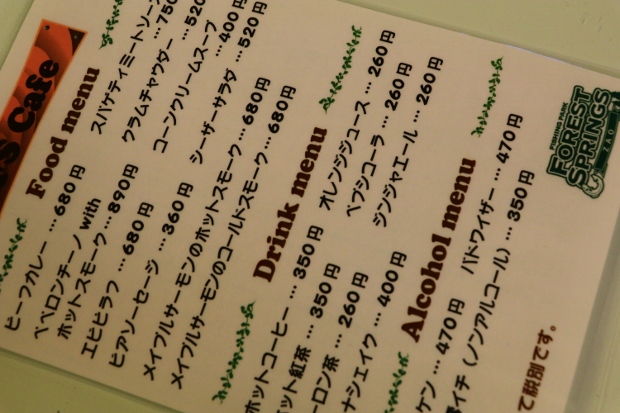 S Cafe
Food menu
ビーフカレー … 680円
ペペロンチーノ with
ホットスモーク … 890円
エビピラフ … 680円
ビアソーセージ … 360円
メイプルサーモンのホットスモーク … 680円
メイプルサーモンのコールドスモーク … 680円
スパゲティミートソー
クラムチャウダー … 750
コーンクリームスープ
… 520
400円
シーザーサラダ … 520円
Drink menu
ホットコーヒー … 350円
ット紅茶 … 350円
ーロン茶 … 260円
ナシェイク … 400円
オレンジジュース … 260円
ペプシコーラ … 260円
ジンジャエール … 260円
Alcohol menu
ケン … 470円
イチ（ノンアルコール） … 350円
バドワイザー … 470円
て税別です。
FISHING PARK
FOREST
SPRINGS
ZAO